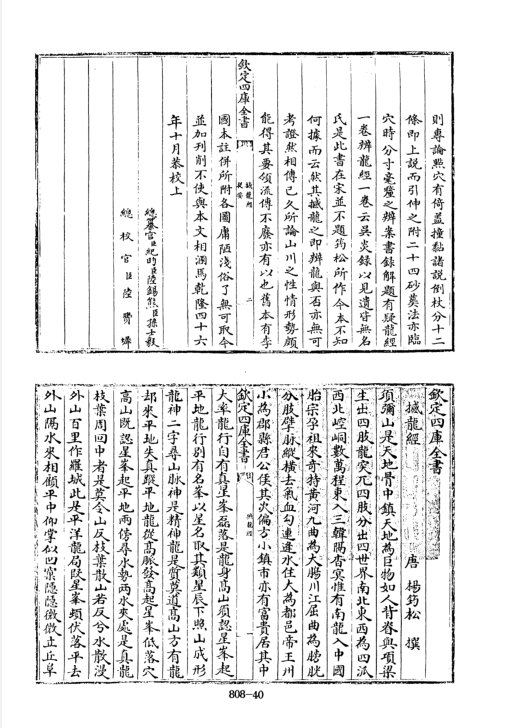 則專論㸃穴有倚葢撞黏諸説倒杖分十二
條即上説而引伸之附二十四砂葬法亦臨
穴時分寸毫釐之辨案書録解題有疑龍經
一卷辨龍經一卷云吳炎録以見遺皆無名
氏是此書在宋並不題筠松所作今本不知
何據而云然其撼龍之即辨龍與否亦無可
考證然相傳已久所論山川之性情形勢頗
能得其要領流傳不廢亦有以也舊本有李
欽定四庫全書
撼龍經
提要
國本註併所附各圖庸陋淺俗了無可取今
並加刋削不使與本文相溷焉乾隆四十六
年十月恭校上
總纂官臣紀昀臣陸錫熊臣孫士毅
總校官臣陸費墀
欽定四庫全書
撼龍經
唐 楊筠松 撰
項彌山是天地骨中鎮天地為巨物如人背脊與項梁
生出四肢龍突兀四肢分出四世界南北東西為四派
西北崆峒數萬程東入三韓隔杳冥惟有南龍入中國
胎宗孕祖來奇特黄河九曲為大腸川江屈曲為膀胱
分肢擘脈縱横去氣血勾連逢水住大為都邑帝王州
小為郡縣君公侯其次偏方小鎮市亦有富貴居其中
欽定四庫全書
撼龍經
大率龍行自有真星峯磊落是龍身高山須認星峯起
平地龍行别有名峯以星名取其類星辰下照山成形
龍神二字尋山脉神是精神龍是質莫道高山方有龍
却來平地失真蹤平地龍從高脈發高起星峯低落穴
高山既認星峯起平地兩傍尋水勢兩水夾處是真龍
枝葉周回中者是莫令山反枝葉散山若反兮水散漫
外山百里作羅城此是平洋龍局段星峯頓伏落平去
外山隔水來相顧平中仰掌似凹窠隱隱微微立丘阜
808-40